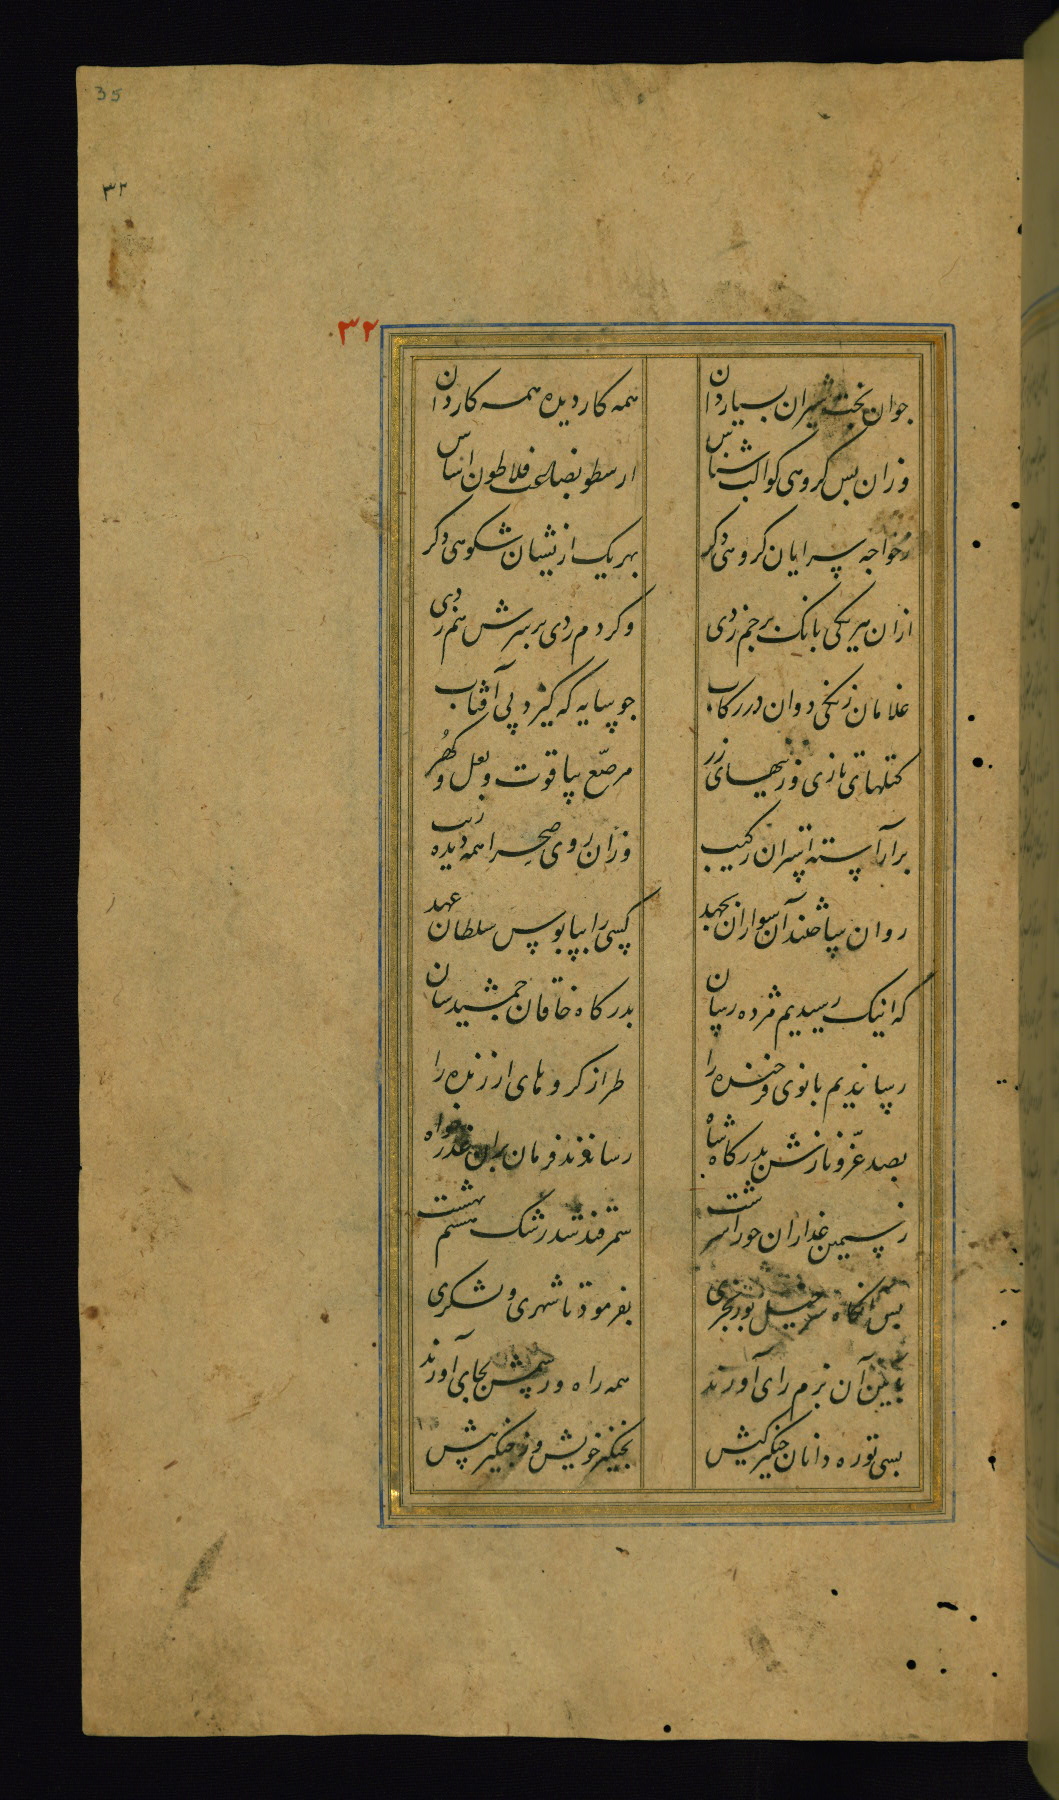 35
۳۲
۳۲
جوان بخت شیران بسیاردان همه کار دیده همه کاردان
وزان بس کروهی کواکب شناس ارسطو نصایح فلاطون اساس
زخواجه سرایان کروهی دکر بهریک ازیشان شکوهی دکر
ازان هریکی بانک برجم زدی وکر دم زدی بر سرش هم زدی
غلامان زنکی دوان در رکاب جو سایه که کیرد پی آفتاب
کتلهای تازی وزینهای زر مرصّع بیاقوت و لعل و کهر
برآراسته استران رکیب وزان روی صحرا همه دیده زیب
روان ساختند آن سواران بجهد کسی را بپابوس سلطان عهد
که اینک رسیدیم مژده رسان بدرکاه خاقان جمشیدسان
رساندیم بانوی فرخنده را طراز کروهای ارزنده را
بصد عزّ و نازش بدرکاه شاه رساندند فرمان بران عذرخواه
ز سیمین عذاران حورا سرشت سمرقند شد رشک هشتم بهشت
بس آنکاه بفرمود تا شهری و لشکری
بآیین آن بزم رای آورند همه راه و رسمش بجای آورند
بسی توره دانان جنکیز کیش بجنکیز خویش و ز جنکیز پیش